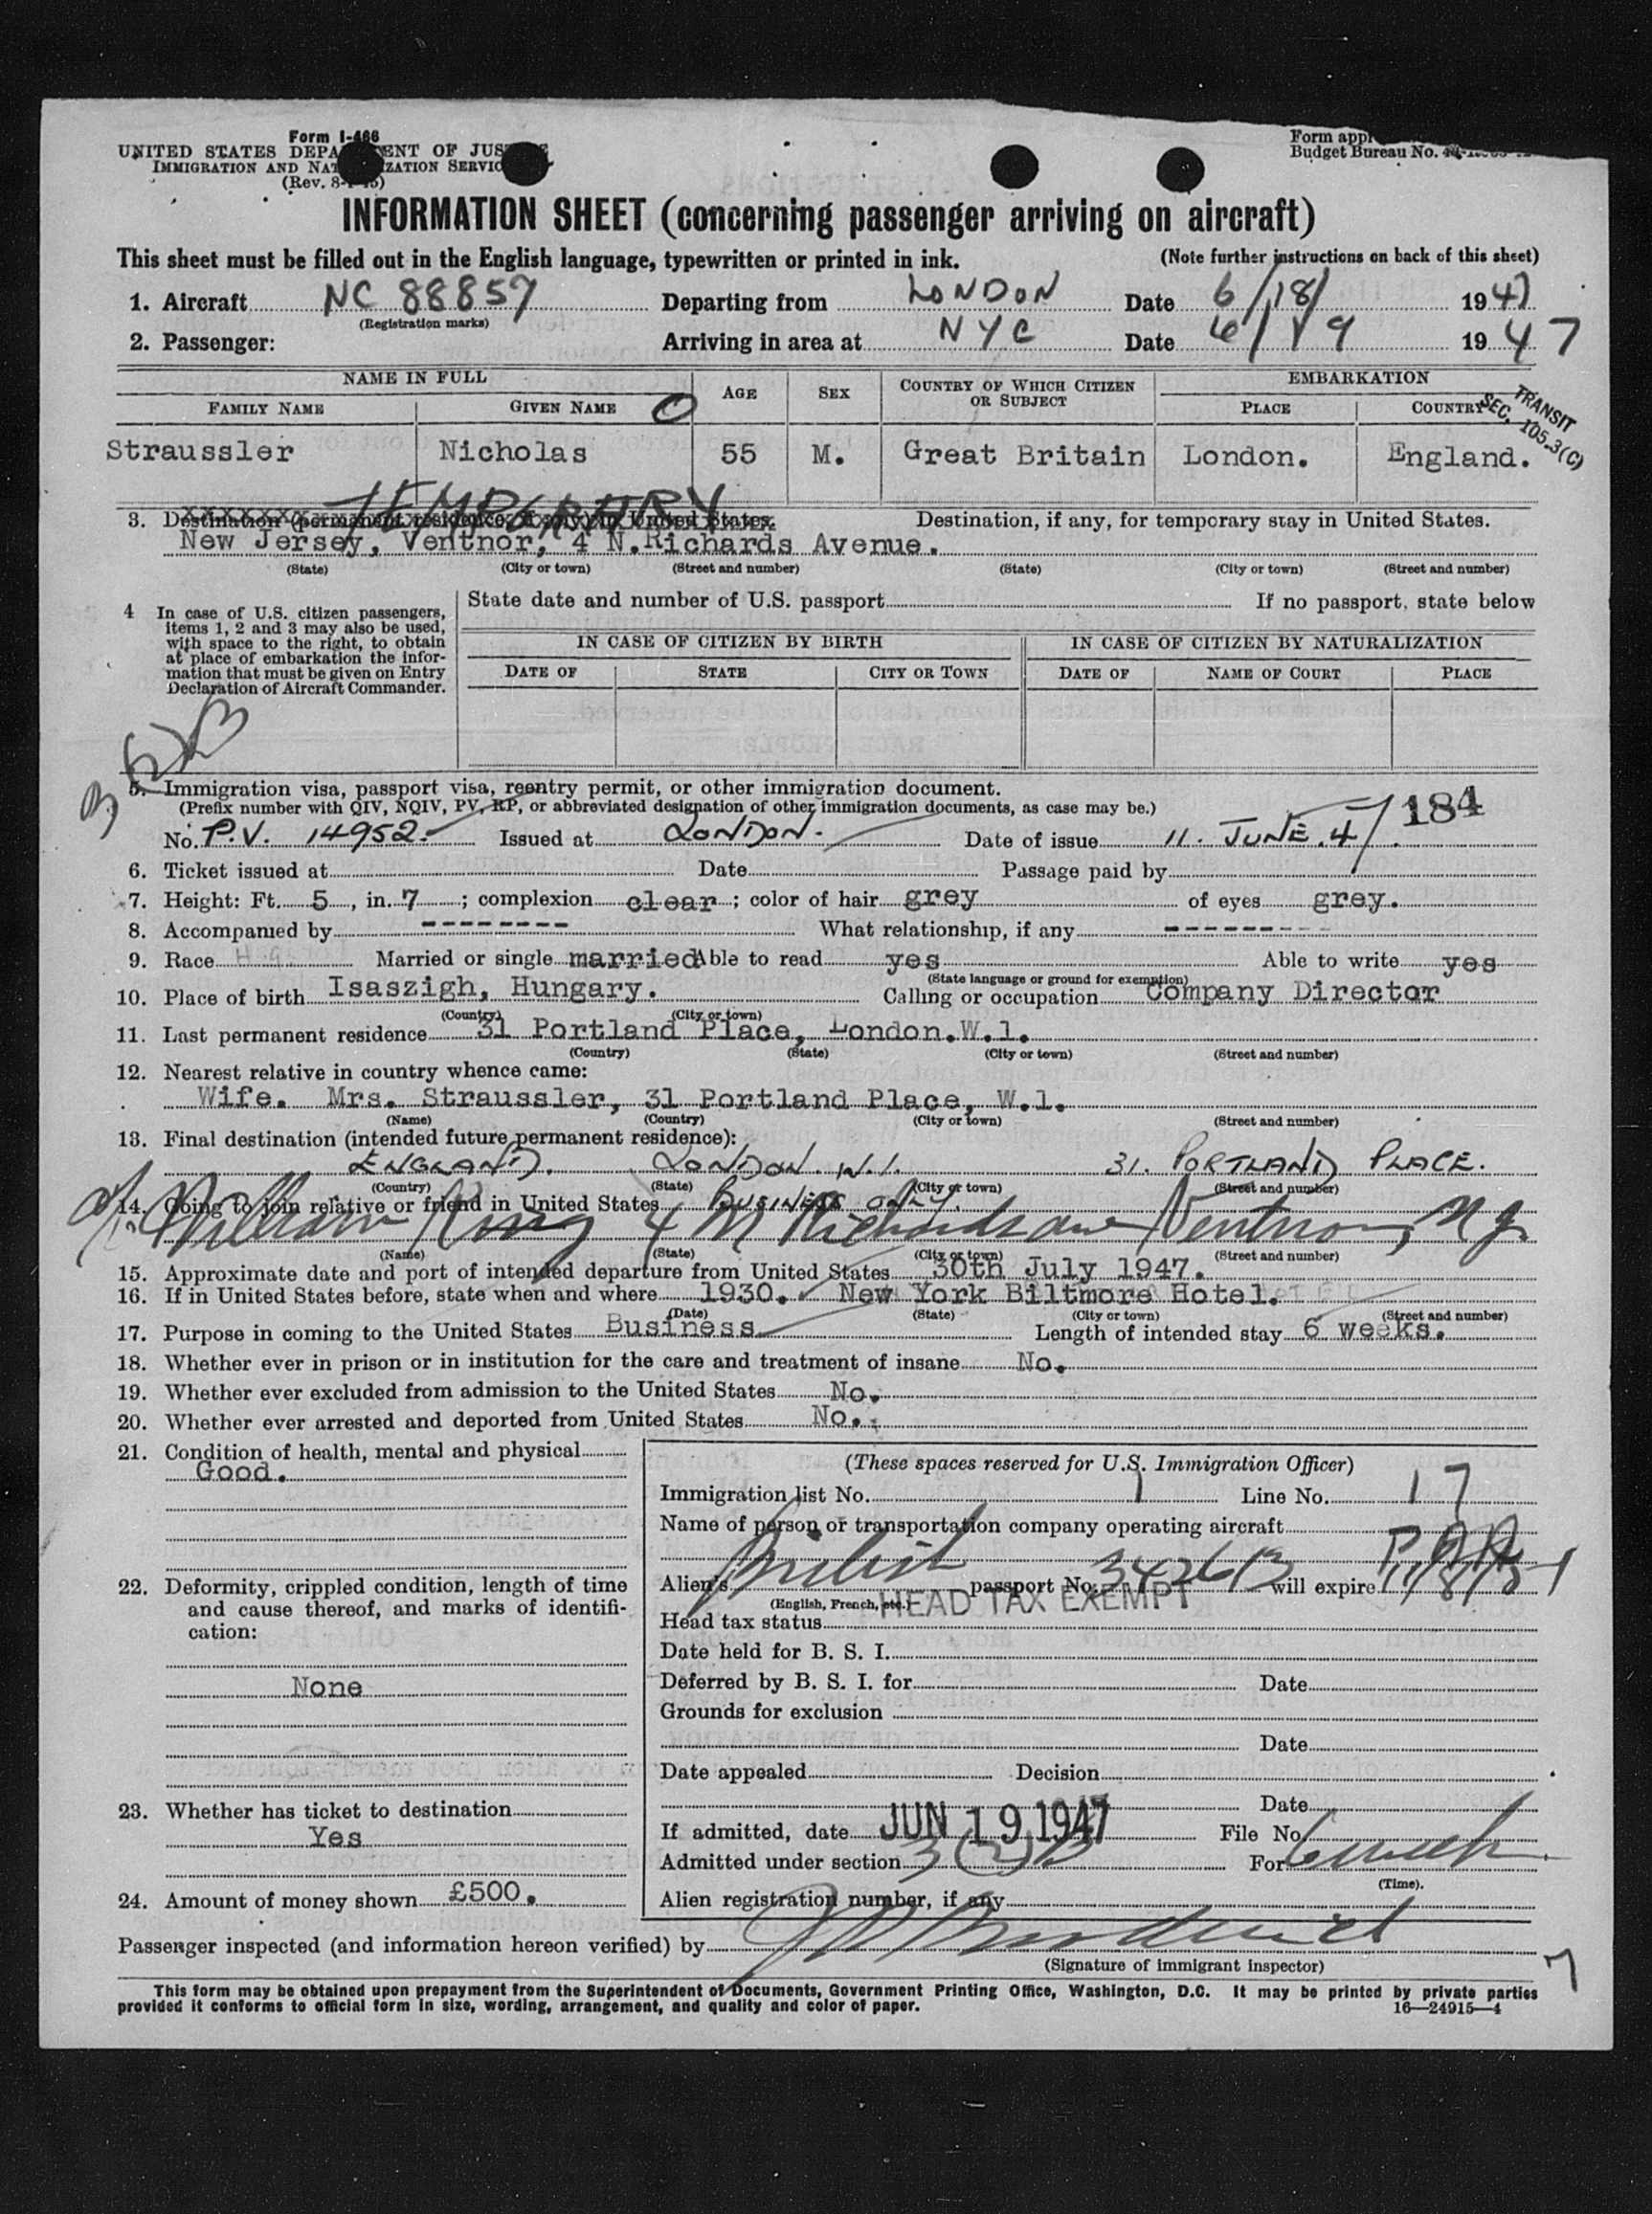 Form I-466
UNITED STATES DEPA ENT OF JUS
IMMIGRATION AND NAT IZATION SERVIC
(Rev. 8-
Form appr
Budget Bureau No.
INFORMATION SHEET (concerning passenger arriving on aircraft)
This sheet must be filled out in the English language, typewritten or printed in ink. (Note further instructions on back of this sheet)
1. Aircraft NC 88857 Departing from LONDON Date 6/18/ 1947
(Registration marks)
2. Passenger: Arriving in area at NYC Date 6/19 1947
NAME IN FULL AGE SEX COUNTRY OF WHICH CITIZEN OR SUBJECT EMBARKATION
FAMILY NAME GIVEN NAME PLACE COUNTRY
TRANSIT
SEC. 105.3(C)
Straussler Nicholas 55 M. Great Britain London. England.
TEMPORARY
3. Destination (permanent residence, if any) in United States. Destination, if any, for temporary stay in United States.
New Jersey, Ventnor, 4 N.Richards Avenue.
(State) (City or town) (Street and number) (State) (City or town) (Street and number)
4 In case of U.S. citizen passengers,
items 1, 2 and 3 may also be used,
with space to the right, to obtain
at place of embarkation the infor-
mation that must be given on Entry
Declaration of Aircraft Commander.
State date and number of U.S. passport If no passport, state below
IN CASE OF CITIZEN BY BIRTH IN CASE OF CITIZEN BY NATURALIZATION
DATE OF STATE CITY OR TOWN DATE OF NAME OF COURT PLACE
3(2)B
5. Immigration visa, passport visa, reentry permit, or other immigration document.
(Prefix number with QIV, NQIV, PV, RP, or abbreviated designation of other immigration documents, as case may be.)
184
No. P.V. 14952. Issued at LONDON. Date of issue 11. JUNE. 47.
6. Ticket issued at Date Passage paid by
7. Height: Ft. 5, in. 7; complexion clear; color of hair grey of eyes grey.
8. Accompanied by -------- What relationship, if any ---------
9. Race Married or single married Able to read yes Able to write yes
(State language or ground for exemption)
10. Place of birth Isaszigh, Hungary. Calling or occupation Company Director
(Country) (City or town)
11. Last permanent residence 31 Portland Place, London.W.1.
(Country) (State) (City or town) (Street and number)
12. Nearest relative in country whence came:
Wife. Mrs. Straussler, 31 Portland Place, W.1.
(Name) (Country) (City or town) (Street and number)
13. Final destination (intended future permanent residence):
ENGLAND. LONDON. W.1. 31. PORTLAND PLACE.
(Country) (State) (City or town) (Street and number)
14. Going to join relative or friend in United States BUSINESS ONLY.
William King 4 N Richards ave Ventnor, N J.
(Name) (State) (City or town) (Street and number)
15. Approximate date and port of intended departure from United States 30th July 1947.
16. If in United States before, state when and where 1930. New York Biltmore Hotel.
(Date) (State) (City or town) (Street and number)
17. Purpose in coming to the United States Business Length of intended stay 6 weeks.
18. Whether ever in prison or in institution for the care and treatment of insane No.
19. Whether ever excluded from admission to the United States No.
20. Whether ever arrested and deported from United States No.
21. Condition of health, mental and physical
Good.
22. Deformity, crippled condition, length of time
and cause thereof, and marks of identifi-
cation:
None
23. Whether has ticket to destination
Yes
24. Amount of money shown £500.
(These spaces reserved for U.S. Immigration Officer)
Immigration list No. 1 Line No. 17
Name of person or transportation company operating aircraft
Alien's British passport No. 34261B will expire
(English, French, etc.)
HEAD TAX EXEMPT
Head tax status
Date held for B. S. I.
Deferred by B. S. I. for Date
Grounds for exclusion
Date
Date appealed Decision
Date
If admitted, date JUN 19 1947 File No.
Admitted under section 3(2)B For 6 weeks
(Time).
Alien registration number, if any
Passenger inspected (and information hereon verified) by
(Signature of immigrant inspector)
7
This form may be obtained upon prepayment from the Superintendent of Documents, Government Printing Office, Washington, D.C. It may be printed by private parties
provided it conforms to official form in size, wording, arrangement, and quality and color of paper. 16—24915-4